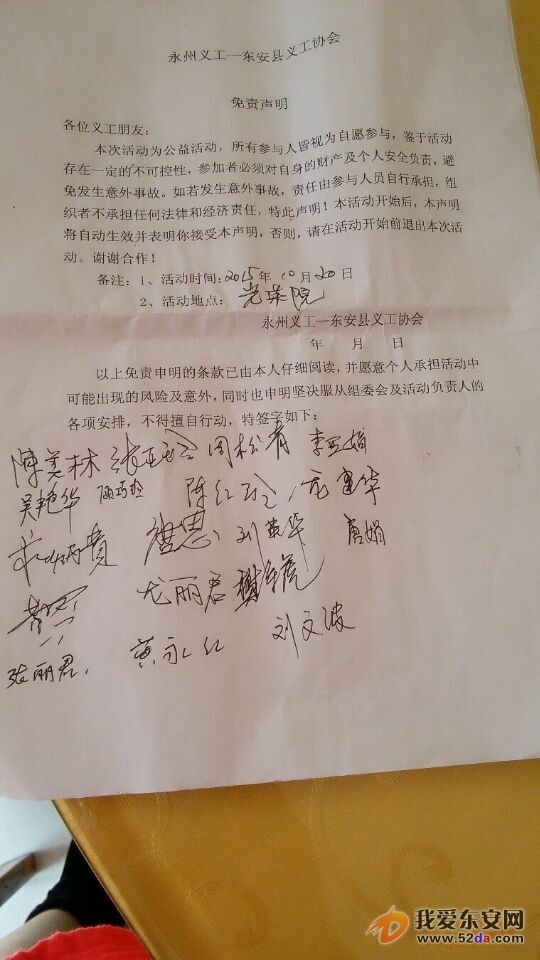 永州义工—东安县义工协会
免责声明
各位义工朋友：
本次活动为公益活动，所有参与人皆视为自愿参与，鉴于活动
存在一定的不可控性，参加者必须对自身的财产及个人安全负责，避
免发生意外事故。如若发生意外事故，责任由参与人员自行承担，组
织者不承担任何法律和经济责任，特此声明！本活动开始后，本声明
将自动生效并表明你接受本声明，否则，请在活动开始前退出本次活
动。谢谢合作！
备注：1、活动时间：2015年10月20日
2、活动地点：光荣院
永州义工—东安县义工协会
年 月 日
以上免责申明的条款已由本人仔细阅读，并愿意个人承担活动中
可能出现的风险及意外，同时也申明坚决服从组委会及活动负责人的
各项安排，不得擅自行动，特签字如下：
陈美林 周松青
吴艳华 陈红
唐思 刘黄华 唐娟
尤丽君
张丽君. 黄永红 刘文波
我爱东安网
www.52da.com